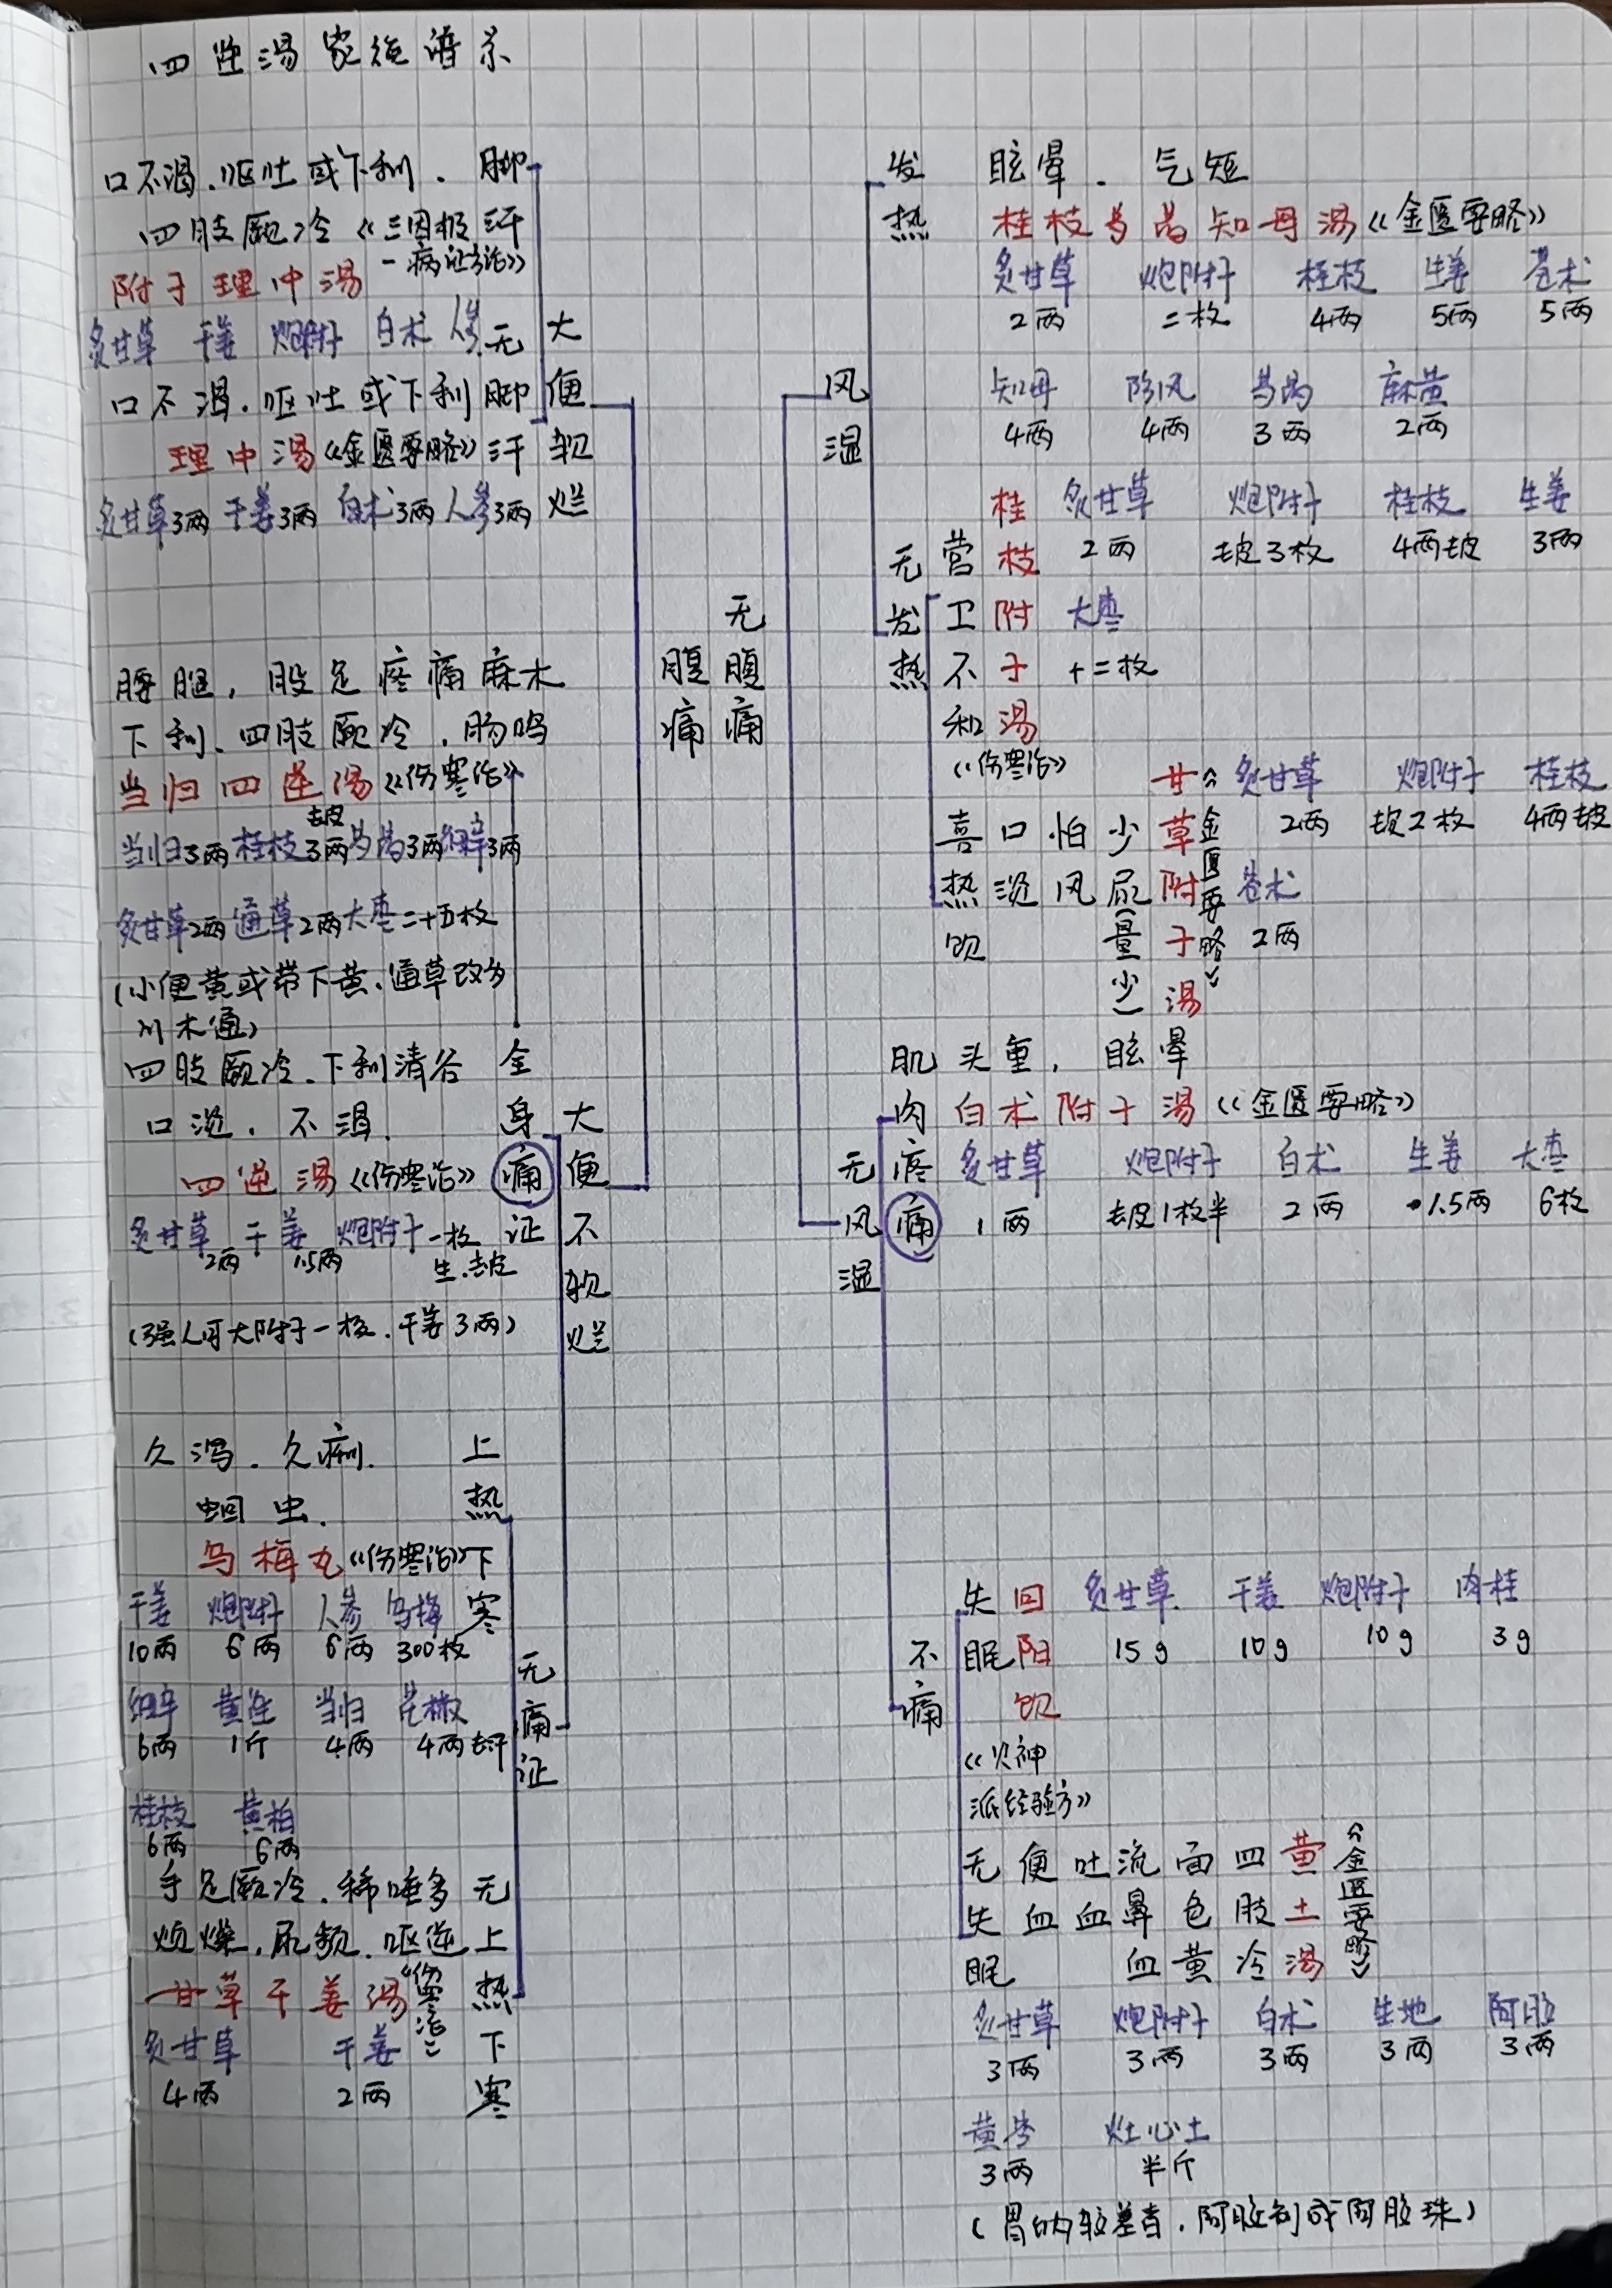 四逆汤家族谱系
口不渴.呕吐或下利.
四肢厥冷《三因极
一病证方论》
脚汗
附子理中汤
炙甘草 干姜 炮附子 白术 人参
口不渴.呕吐或下利
无脚汗
理中汤《金匮要略》
炙甘草3两 干姜3两 白术3两 人参3两
大便软烂
腰腿,股足疼痛麻木
下利、四肢厥冷,肠鸣
当归四逆汤《伤寒论》
去皮
当归3两 桂枝3两 芍药3两 细辛3两
炙甘草2两 通草2两 大枣二十五枚
(小便黄或带下黄.通草改为
川木通)
四肢厥冷.下利清谷
口淡.不渴.
四逆汤《伤寒论》
炙甘草 干姜 炮附子 一枚
2两 1.5两 生.去皮
(强人可大附子一枚.干姜3两)
全身痛证
大便不软烂
腹痛
久泻.久痢.
蛔虫.
乌梅丸《伤寒论》
上热下寒
干姜 炮附子 人参 乌梅
10两 6两 6两 300枚
细辛 黄连 当归 花椒
6两 1斤 4两 4两去汗
桂枝 黄柏
6两 6两
无痛证
手足厥冷.稀唾多
烦燥.尿频.呕逆
甘草干姜汤《伤寒论》
炙甘草 干姜
4两 2两
无上热下寒
无腹痛
风湿
发热
眩晕.气短
桂枝芍药知母汤《金匮要略》
炙甘草 炮附子 桂枝 生姜 苍术
2两 二枚 4两 5两 5两
知母 防风 芍药 麻黄
4两 4两 3两 2两
无发热
营卫不和
桂枝附子汤
《伤寒论》
炙甘草 炮附子 桂枝 生姜
2两 去皮3枚 4两去皮 3两
大枣
十二枚
喜热饮
口淡
怕风
少尿(量少)
甘草附子汤
《金匮要略》
炙甘草 炮附子 桂枝
2两 去皮2枚 4两去皮
苍术
2两
无风湿
肌肉疼痛
头重,眩晕
白术附子汤《金匮要略》
炙甘草 炮附子 白术 生姜 大枣
1两 去皮1枚半 2两 1.5两 6枚
不痛
失眠
回阳饮
《火神
派经验方》
炙甘草 干姜 炮附子 肉桂
15g 10g 10g 3g
无失眠
便血
吐血
流鼻血
面色黄
四肢冷
黄土汤
《金匮要略》
炙甘草 炮附子 白术 生地 阿胶
3两 3两 3两 3两 3两
黄芩 灶心土
3两 半斤
(胃纳较差者.阿胶制成阿胶珠)